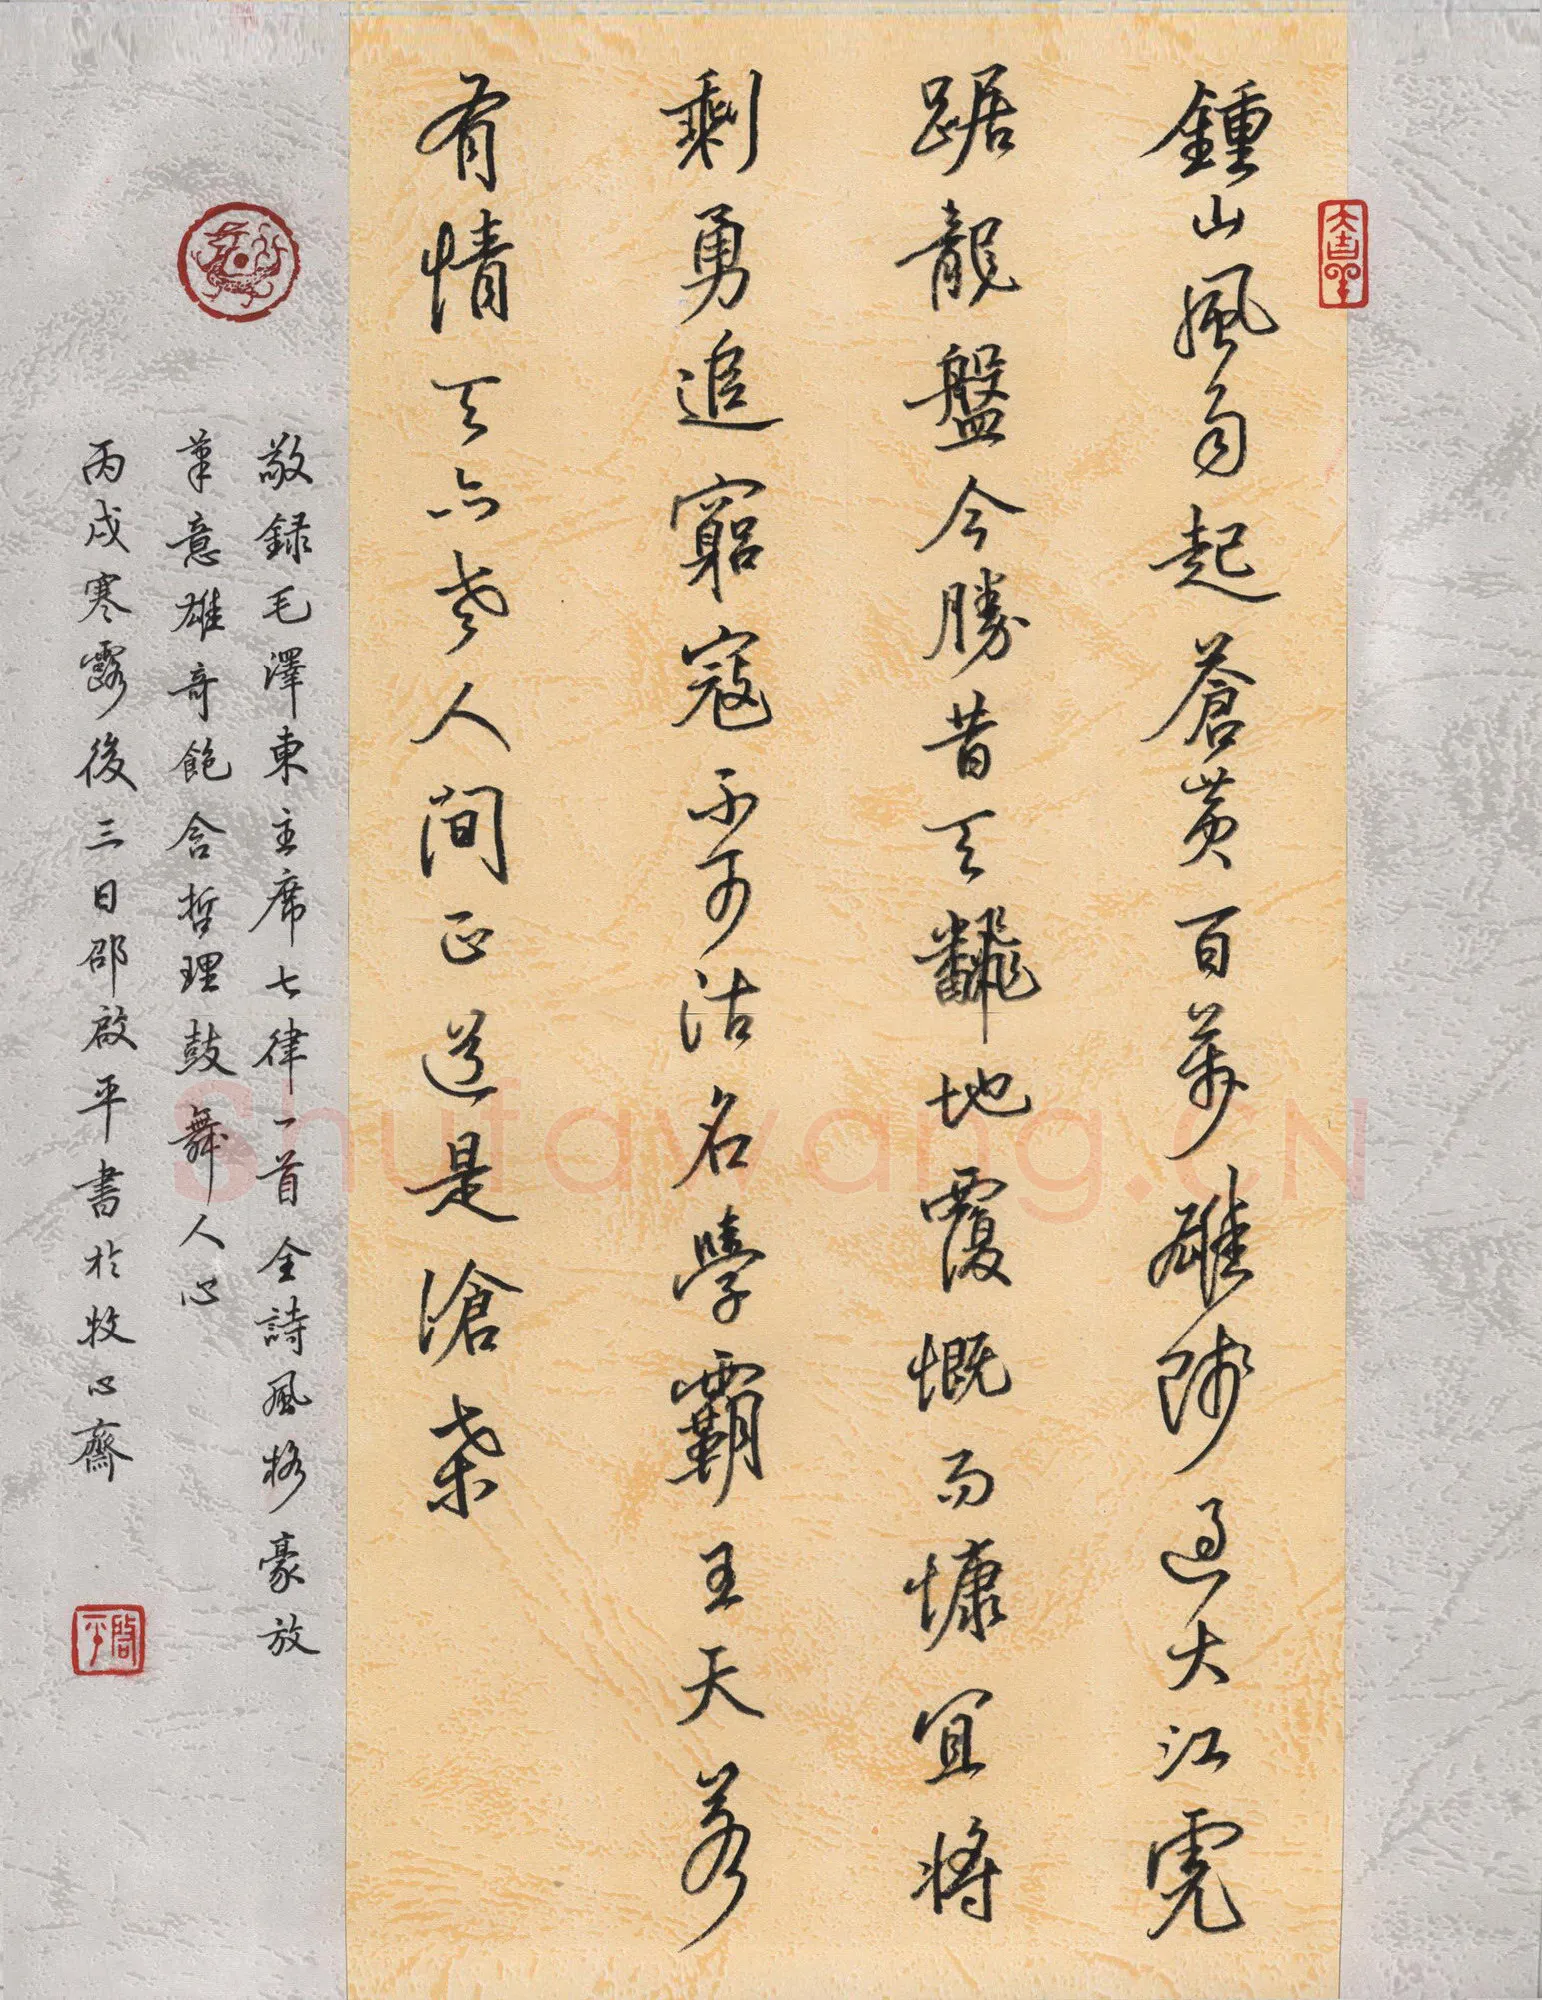 大吉羊
鍾山風雨起蒼黃百萬雄師過大江虎
踞龍盤今勝昔天飜地覆慨而慷宜將
剩勇追窮寇不可沽名學霸王天若
有情天亦老人間正道是滄桑
敬録毛澤東主席七律一首全詩風格豪放
筆意雄奇飽含哲理鼓舞人心
丙戌寒露後三日邵啟平書於牧心齋
啓平
Shufawang.CN